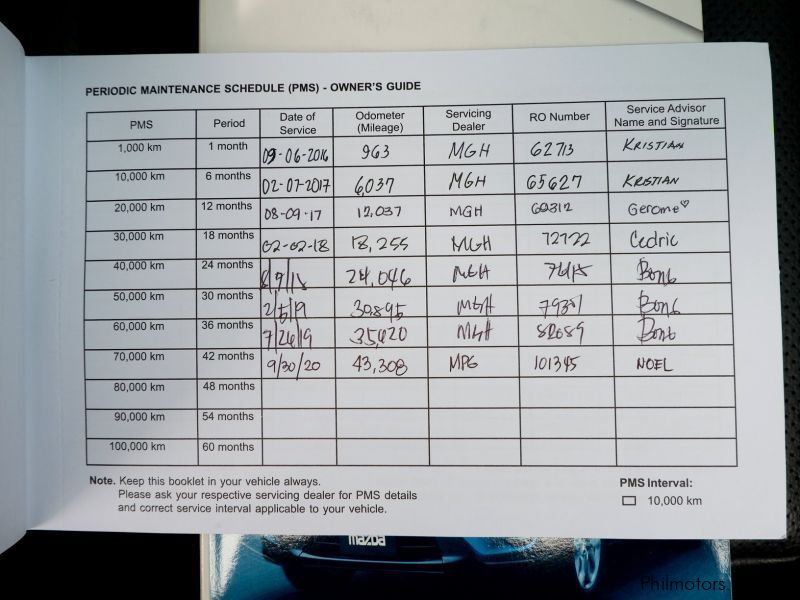 PERIODIC MAINTENANCE SCHEDULE (PMS) - OWNER'S GUIDE
PMS Period Date of Service Odometer (Mileage) Servicing Dealer RO Number Service Advisor Name and Signature
1,000 km 1 month 09-06-2016 963 MGH 62713 KRISTIAN
10,000 km 6 months 02-07-2017 6,037 MGH 65627 KRISTIAN
20,000 km 12 months 08-09-17 12,037 MGH Gerome♡
30,000 km 18 months 02-02-18 18,255 MGH 72722 Cedric
40,000 km 24 months 24,046 MGH
50,000 km 30 months 2/5/19 30895 MGH
60,000 km 36 months 7/26/19 35,620 MGH
70,000 km 42 months 9/30/20 43,308 MPG 101345 NOEL
80,000 km 48 months
90,000 km 54 months
100,000 km 60 months
Note. Keep this booklet in your vehicle always.
Please ask your respective servicing dealer for PMS details
and correct service interval applicable to your vehicle.
PMS Interval:
10,000 km
mazda
Philmotors